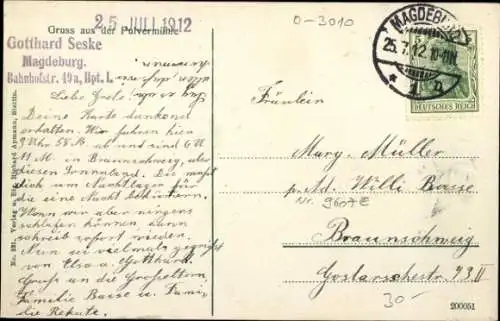 25 JULI 1912
Gruss aus der Pulvermühle
Gotthard Seske
Magdeburg.
Bahnhofstr. 49a, Hpt. I.
Liebe Grete!
Deine Karte dankend
erhalten. Wir fahren hier
Uhr 58 M. ab und sind 6 U
11 M. in Braunschweig, aber
diesen Sonnabend. Du mußt
dich um Nachtlager für
die eine Nacht
Wenn wir aber nirgens
schlafen können dann
schreib sofort wieder.
Nun sei vielmals gegrüßt
von Elsa u. Gotthard.
Gruß an die Großeltern
Familie Basse u. Fami-
lie Rekate.
Verlag v. Richard Aymann, Stettin.
0-3010
MAGDEBURG
25.7.12.10-11N.
* 1 n
DEUTSCHES REICH
Fräulein
Marg. Müller
p. Ad. Willi Basse
Nr. 9607E
Braunschweig
Goslarschestr. 93 II
30-
200051